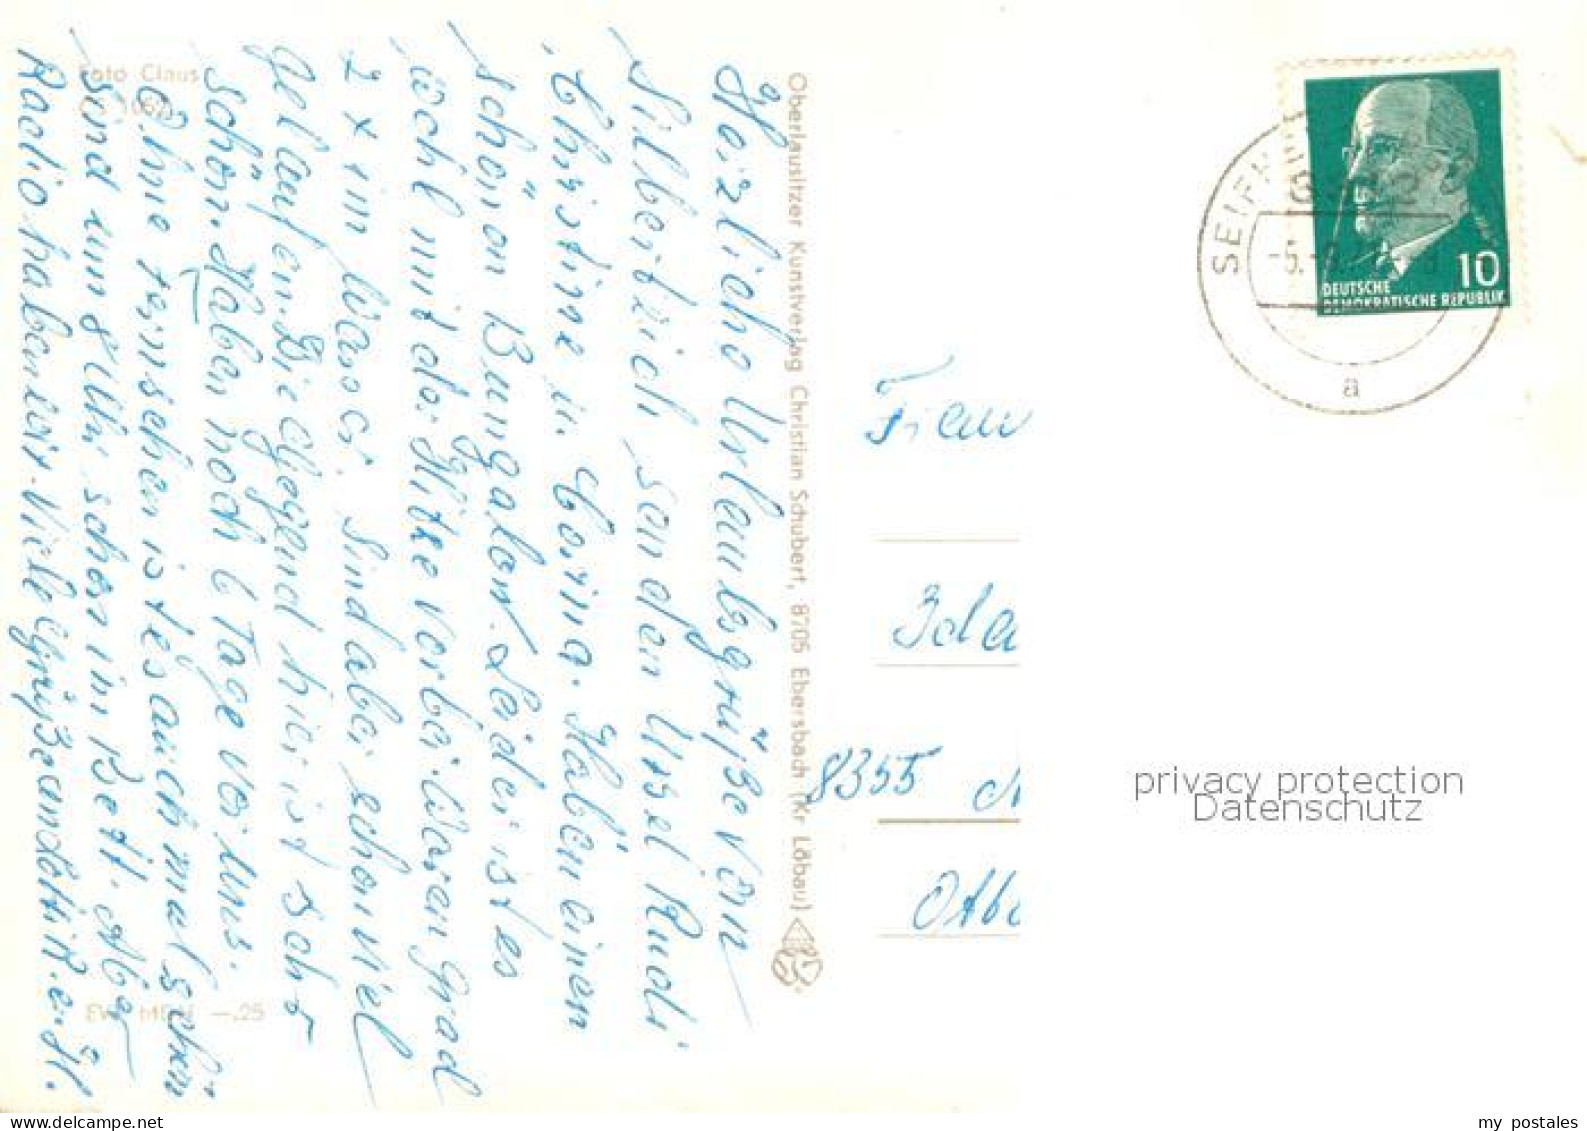 Foto Claus
Herzliche Urlaubsgrüße von
Silberteich senden Ursel Rudi
Christine u. Corina. Haben einen
schönen Bungalow. Leider ist es
wohl mit der Hitze vorbei. Waren grad
2 x im Wasser. Sind aber schon viel
gelaufen. Die Gegend hier ist sehr
schön. Haben noch 6 Tage vor uns.
Ohne fernsehen ist es auch mal schön
sind um 8 Uhr schon im Bett. Aber
Radio haben wir. Viele Grüße an dich.
EVP MDN —.25
Oberlausitzer Kunstverlag Christian Schubert, 8705 Ebersbach (Kr Löbau)
SEIFH
a
10
DEUTSCHE
DEMOKRATISCHE REPUBLIK
Frau
8355
privacy protection
Datenschutz
my postales